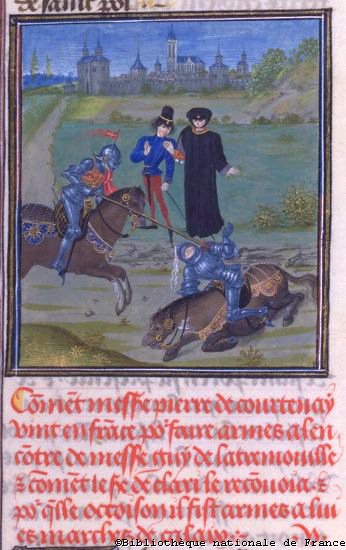 de saint pol
Cõment messe pierre de courtenay
vint en frãce por faire armes a len
cõtre de messe guy de la tremouille
& cõment le sr de clari le recõvoia
por qlle occoison il fist armes a lui
es marches de
©Bibliothèque nationale de France